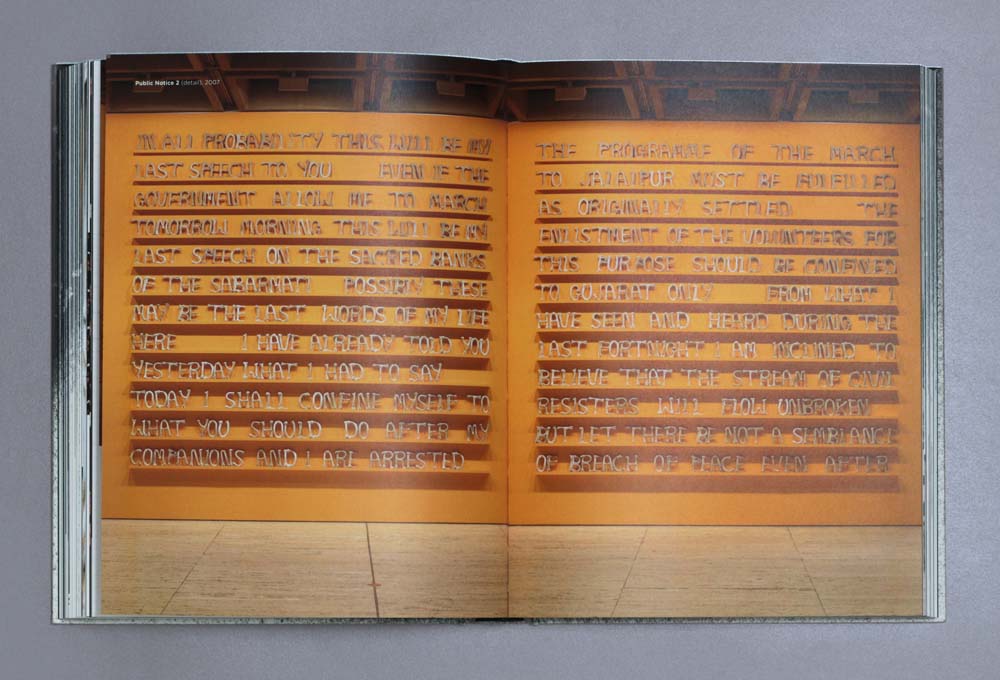 Public Notice 2 (detail), 2007
IN ALL PROBABILITY THIS WILL BE MY
LAST SPEECH TO YOU EVEN IF THE
GOVERNMENT ALLOW ME TO MARCH
TOMORROW MORNING THIS WILL BE MY
LAST SPEECH ON THE SACRED BANKS
OF THE SABARMATI POSSIBLY THESE
MAY BE THE LAST WORDS OF MY LIFE
HERE I HAVE ALREADY TOLD YOU
YESTERDAY WHAT I HAD TO SAY
TODAY I SHALL CONFINE MYSELF TO
WHAT YOU SHOULD DO AFTER MY
COMPANIONS AND I ARE ARRESTED
THE PROGRAMME OF THE MARCH
TO JALALPUR MUST BE FULFILLED
AS ORIGINALLY SETTLED THE
ENLISTMENT OF THE VOLUNTEERS FOR
THIS PURPOSE SHOULD BE CONFINED
TO GUJARAT ONLY FROM WHAT I
HAVE SEEN AND HEARD DURING THE
LAST FORTNIGHT I AM INCLINED TO
BELIEVE THAT THE STREAM OF CIVIL
RESISTERS WILL FLOW UNBROKEN
BUT LET THERE BE NOT A SEMBLANCE
OF BREACH OF PEACE EVEN AFTER